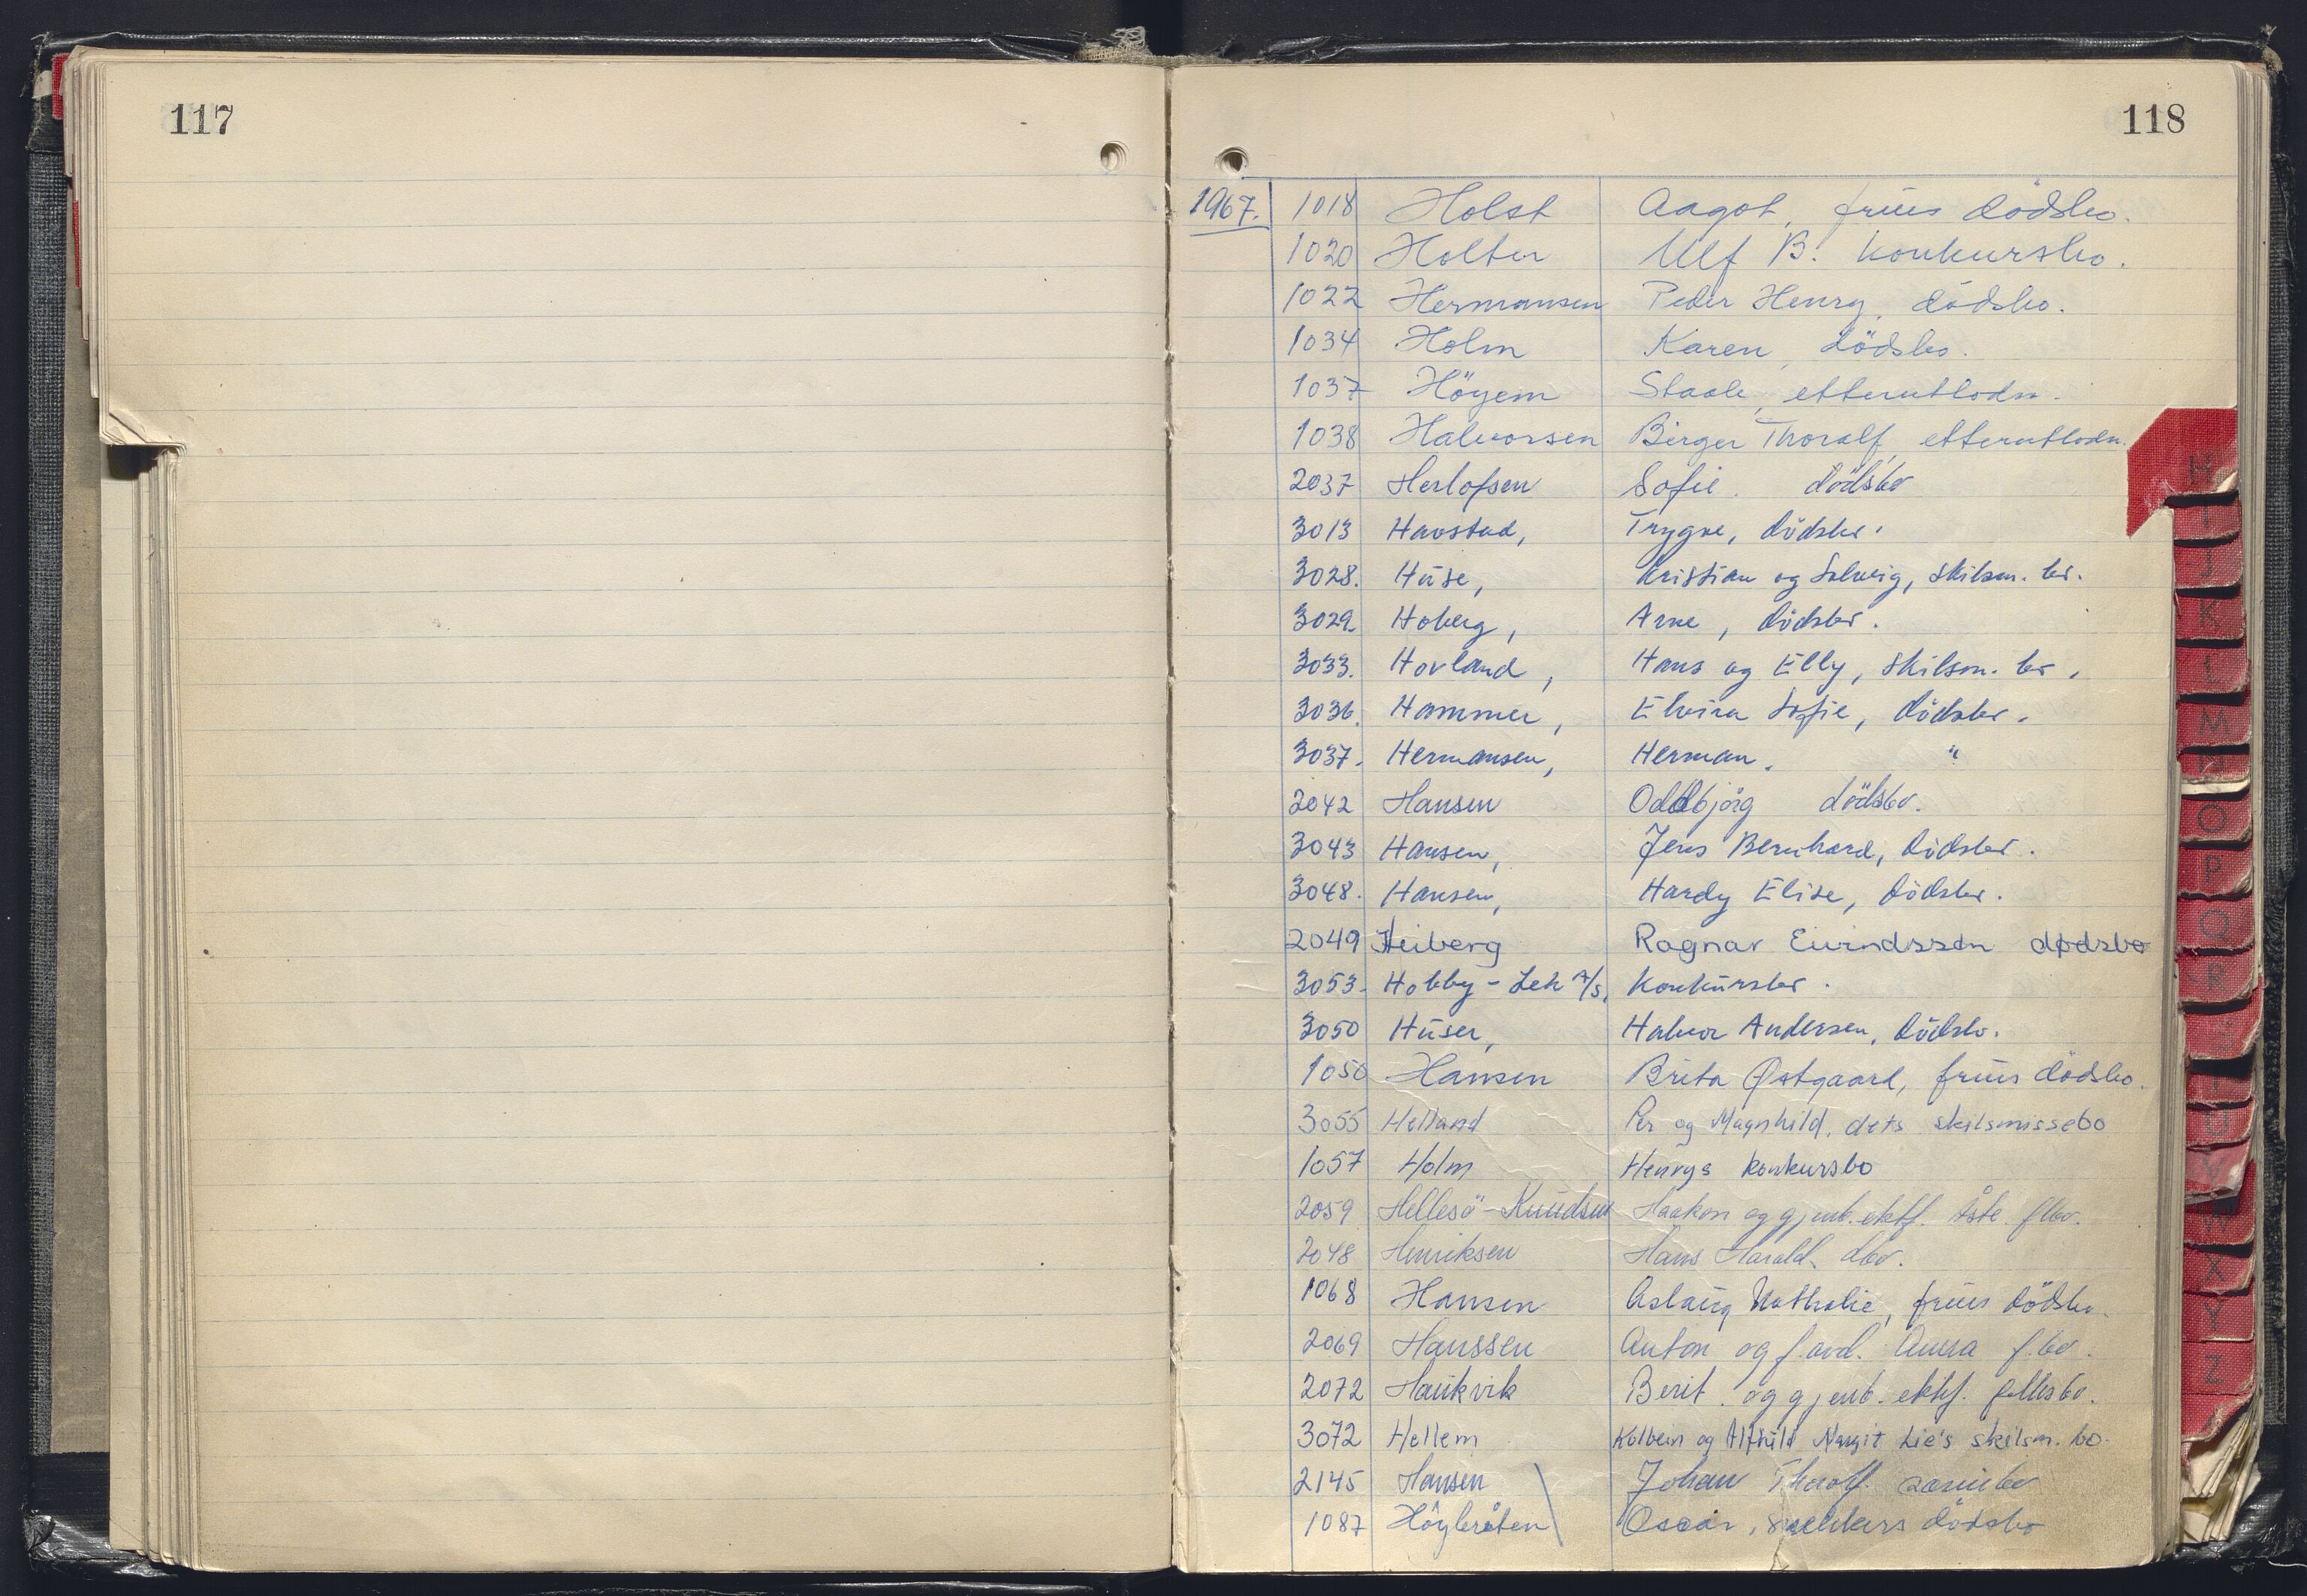 117
118
1967. 1018 Holst Aagot, frues dödsbo.
1020 Holter Ulf B. konkursbo.
1022 Hermansen Peder Henry, dödsbo.
1034 Holm Karen, dödsbo.
1037 Höyem Staale, etterutlodn.
1038 Halvorsen Birger Thoralf, etterutlodn.
2037 Herlofsen Sofie. dödsbo
3013 Havstad, Trygve, dödsbo.
3028. Huse, Kristian og Solveig, skilsm. bo.
3029 Hoberg, Arne, dödsbo.
3033. Hovland, Hans og Elly, skilsm. bo.
3036. Hammer, Elvira Sofie, dödsbo.
3037. Hermansen, Herman. "
2042 Hansen Oddbjörg dödsbo.
3043 Hansen, Jens Bernhard, dödsbo.
3048. Hansen, Hardy Elise, dödsbo.
2049 Heiberg Ragnar Eivindssøn dødsbo
3053. Hobby-Lek A/S, Konkursbo.
3050 Huser, Halvor Andersen, dödsbo.
1050 Hansen Brita Østgaard, frues dödsbo.
3055 Helland Per og Magnhild, dets skilsmissebo
1057 Holm Henrys konkursbo
2059 Hellesö-Knudsen Haakon og gjenl. ektf. Åste flbo.
2048 Henriksen Hans Harald. dbo.
1068 Hansen Aslaug Nathalie, frues dödsbo.
2069 Hanssen Anton og f. avd. Anna f.bo.
2072 Haukvik Berit. og gjenl. ektf. fellesbo.
3072 Hellem Kolbein og Alfhild Margit Lie's skilsm. bo.
2145 Hansen Johan Thoralf.
1087 Höybråten Oscar, dödsbo
H
I
J
K
L
M
N
O
P
Q
R
S
T
U
V
W
X
Y
Z